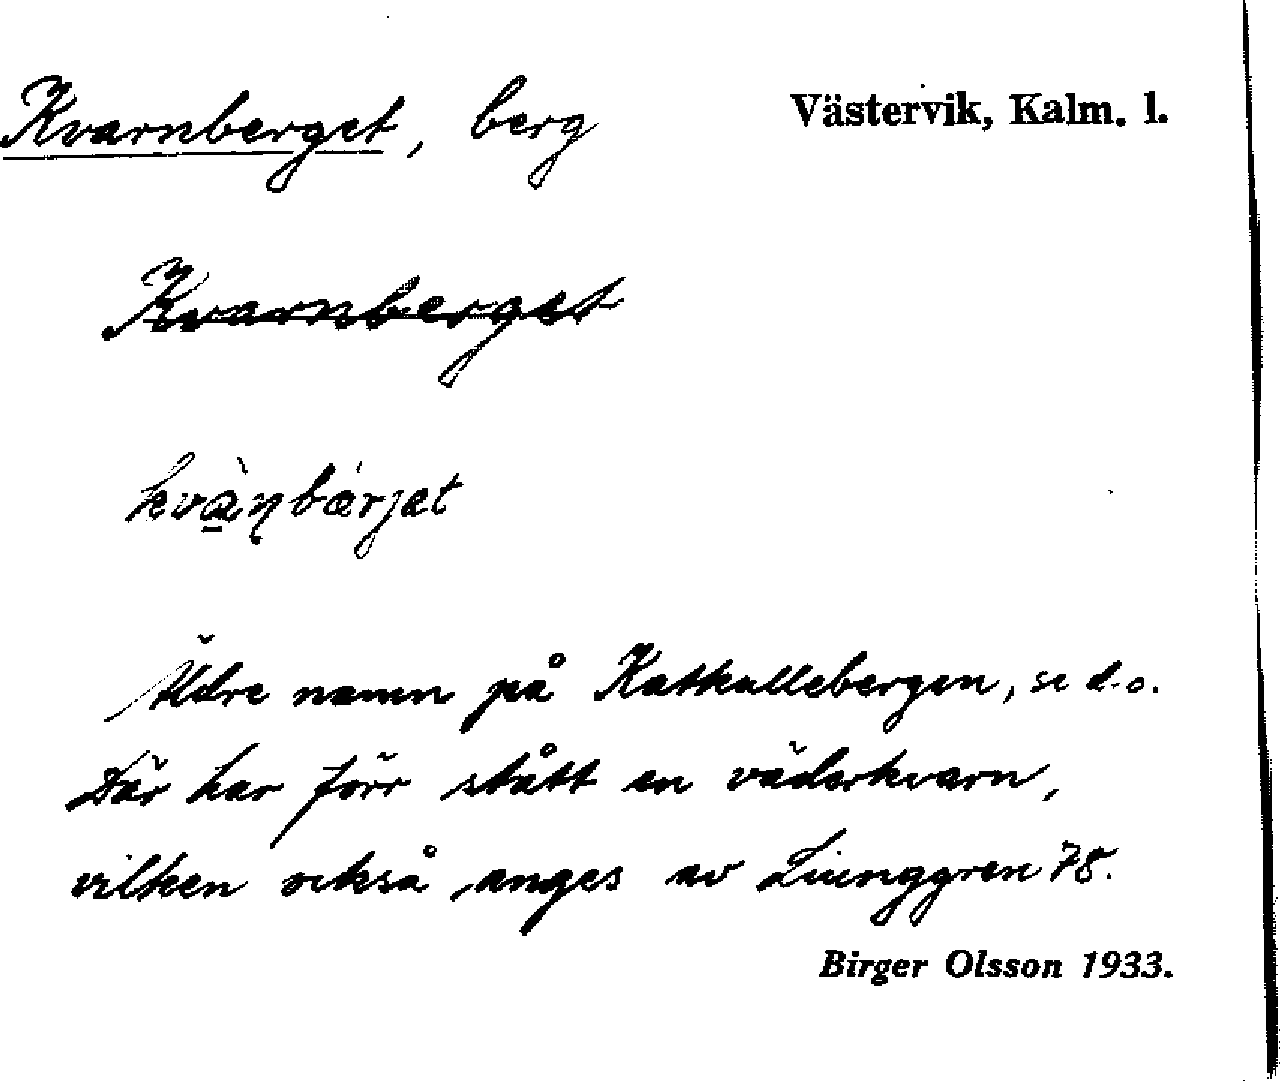 Kvarnberget, berg
Västervik, Kalm. l.
Kvarnberget
Äldre namn på Kattkullebergen, se d.o.
Där har förr stått en väderkvarn,
vilken också anges av Liunggren 78.
Birger Olsson 1933.